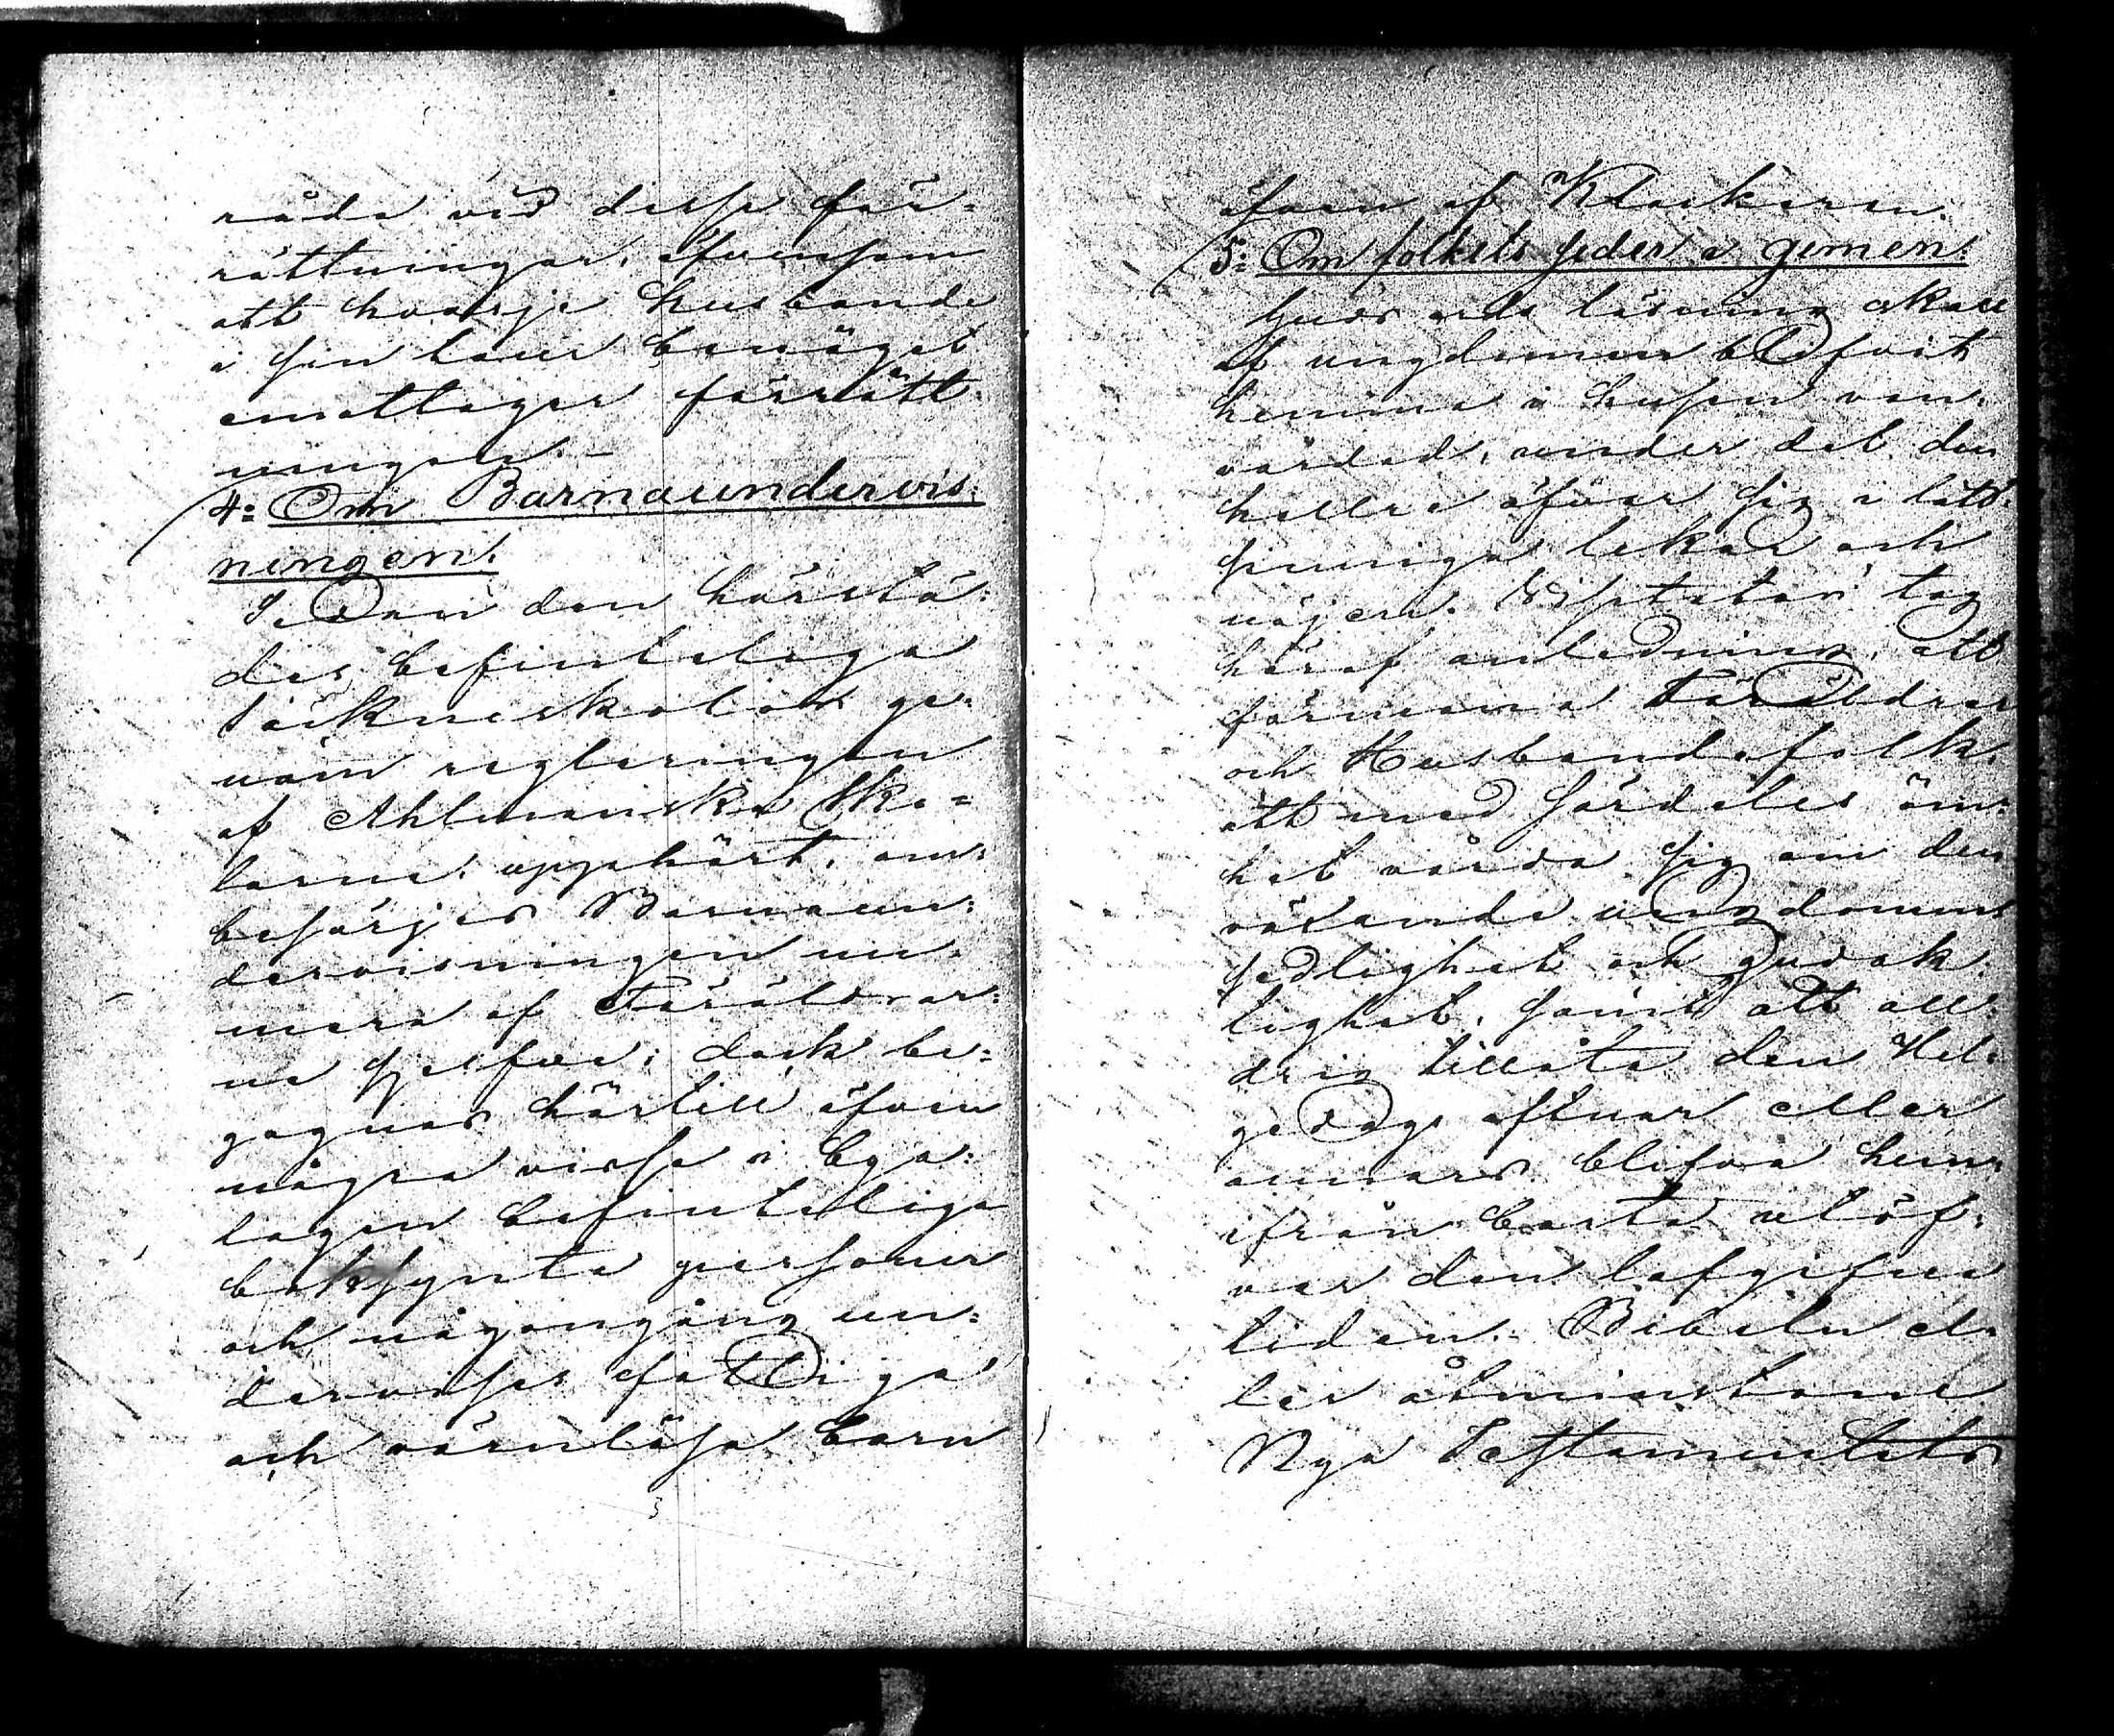 råda vid desse för=
rättningar, äfvensom
att hvarje husbonde
i sin tour benäget
emottager förrätt=
ningen. —
4= Om Barnaundervis=
ningen.
Sedan den härstä=
des befintelige
Sockneskolan ge=
nom regleringen
af Ahlmanska Sko=
larne, upphört, om=
besörjes Barnaun=
dervisningen nu=
mera af Föräldrar=
ne sjelfve; dock be=
gagnas härtill äfven
några visse i bya=
lagen befintelige
boksynte personer
och någongång un=
dervises fattiga
och värnlösa barn
äfven af Klockaren.
5= Om folkets seder i gemen.
Guds ords läsning skall
af ungdomen blifvit
hemma i husen van=
vårdad, under det den
hellre öfvar sig i lätt=
sinniga lekar och
nöjen. Visitator tog
häraf anledning, att
förmana Föräldrar
och Husbondefolk
att med särdeles öm=
het vårda sig om den
växande ungdomens
sedlighet och gudak=
tighet, samt att all=
drig tillåta den Hel=
gedags aftnar eller
annars blifva hem=
ifrån borta utöf=
ver den lofgifne
tiden. Bibeln el=
ler åtminstone
Nya Testamentets